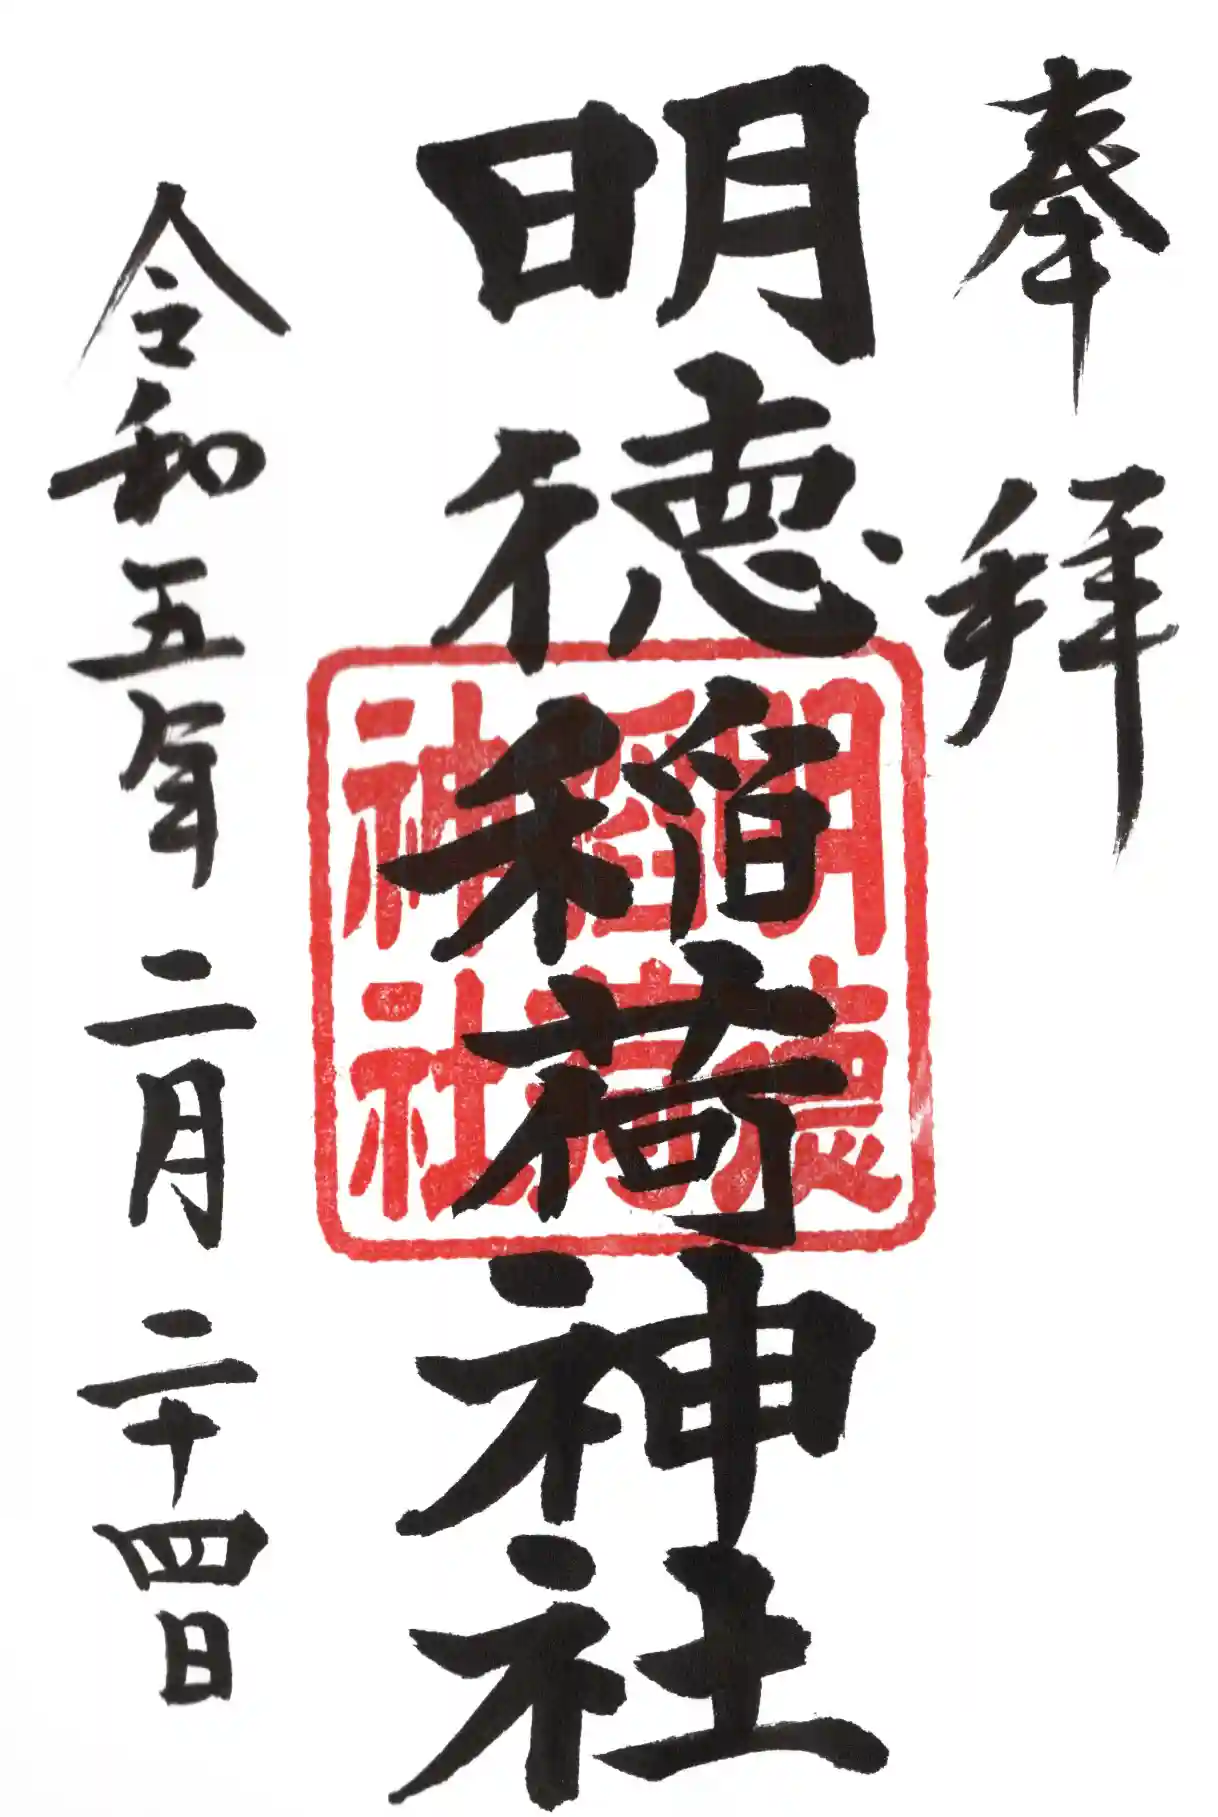 奉拝
明徳稲荷神社
明徳
稲荷
神社
令和五年二月二十四日